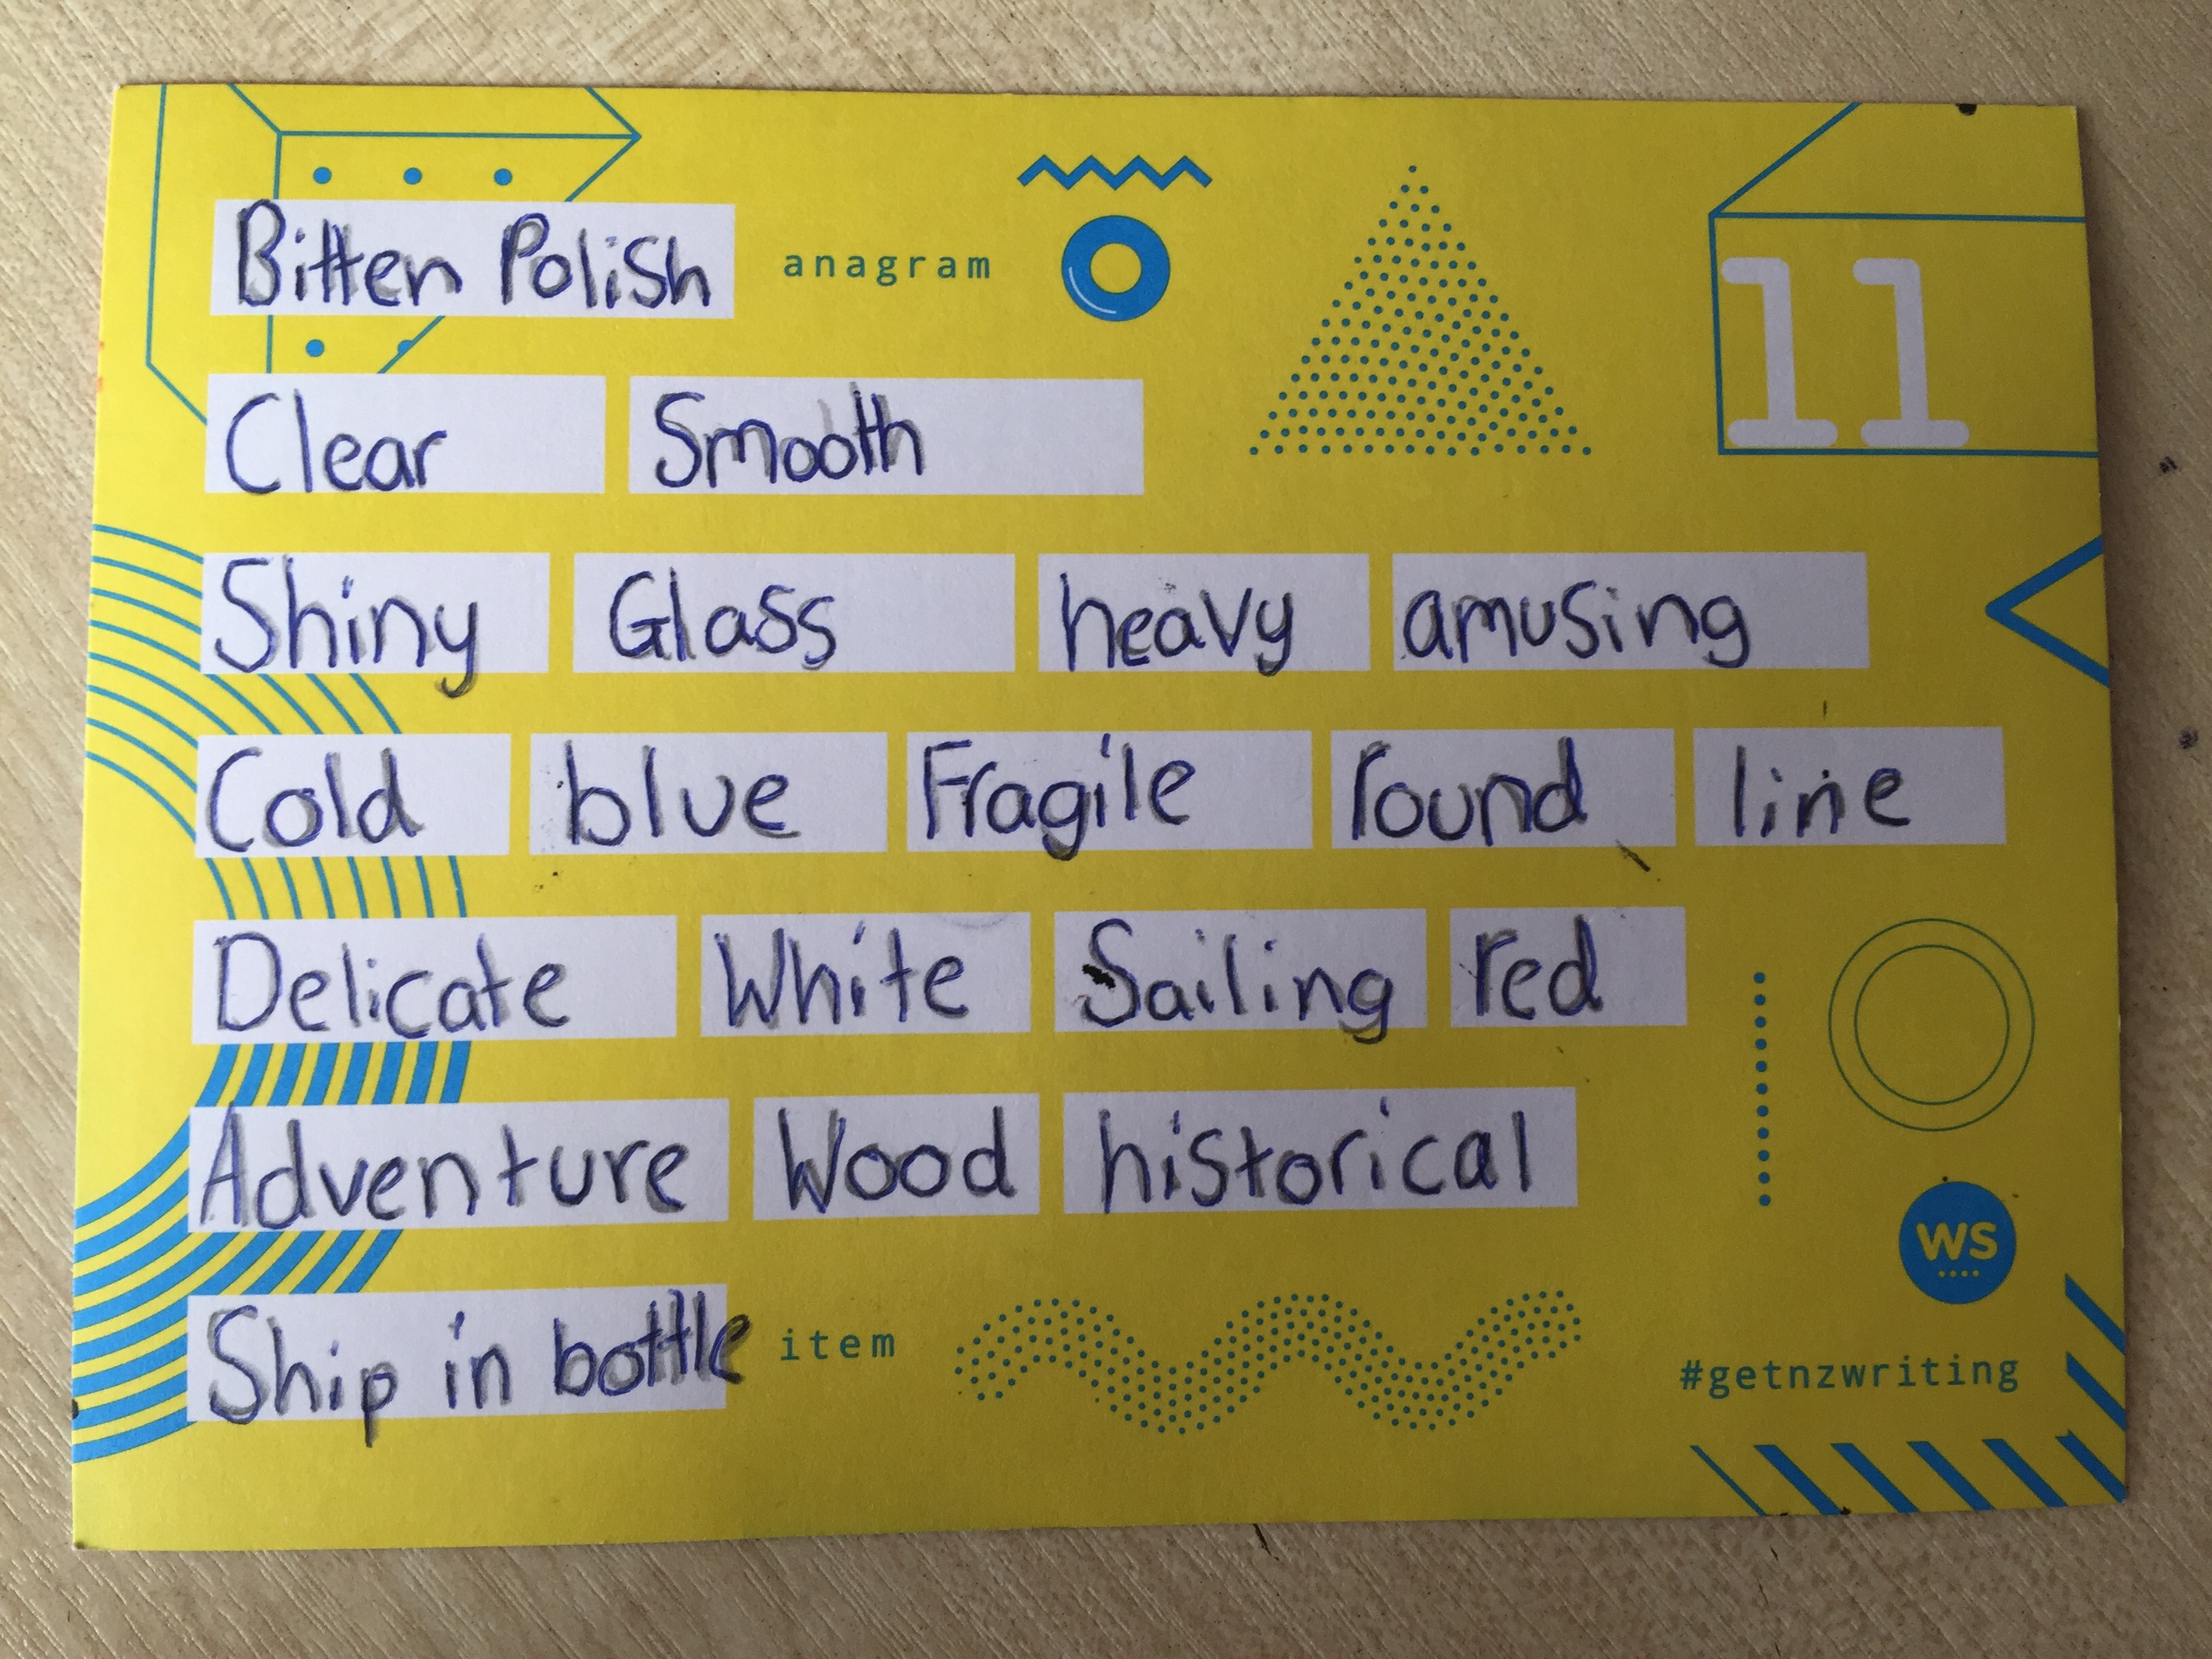 Bitten Polish anagram
11
Clear Smooth
Shiny Glass heavy amusing
Cold blue Fragile round line
Delicate White Sailing red
Adventure Wood historical
WS
Ship in bottle item
#getnzwriting